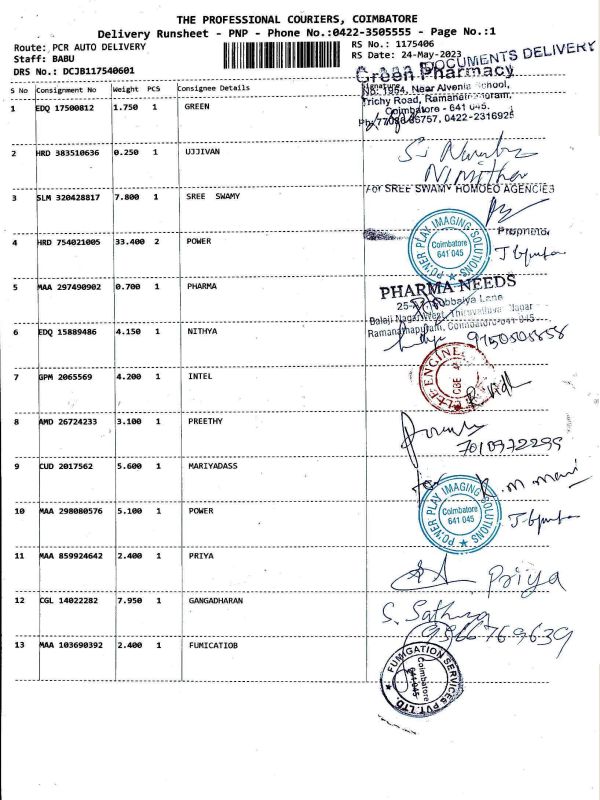 THE PROFESSIONAL COURIERS, COIMBATORE
Delivery Runsheet - PNP - Phone No.:0422-3505555 - Page No.:1
Route: PCR AUTO DELIVERY
Staff: BABU
DRS No.: DCJB117540601
RS No.: 1175406
RS Date: 24-May-2023
DOCUMENTS DELIVERY
S No Consignment No Weight PCS Consignee Details Signature,
Green Pharmacy
Near Alvenia School,
Trichy Road, Ramanathapuram,
Coimbatore - 641 045.
0422-2316925
1 EDQ 17500812 1.750 1 GREEN
2 HRD 383510636 0.250 1 UJJIVAN
3 SLM 320428817 7.800 1 SREE SWAMY
For SREE SWAMY HOMOEO AGENCIES
Proprietor
4 HRD 754021005 33.400 2 POWER
POWER PLAY IMAGING SOLUTIONS
Coimbatore
641 045
5 MAA 297490902 0.700 1 PHARMA
PHARMA NEEDS
Lane
Balaji Nagar West, Thiruvalluvar Nagar
Ramanathapuram, Coimbatore-641 045
6 EDQ 15889486 4.150 1 NITHYA
9150505858
7 GPM 2065569 4.200 1 INTEL
CBE
8 AMD 26724233 3.100 1 PREETHY
7010972299
9 CUD 2017562 5.600 1 MARIYADASS
10 MAA 298080576 5.100 1 POWER
POWER PLAY IMAGING SOLUTIONS
Coimbatore
641 045
11 MAA 859924642 2.400 1 PRIYA
Priya
12 CGL 14022282 7.950 1 GANGADHARAN
9566769639
13 MAA 103690392 2.400 1 FUMICATIOB
FUMIGATION SERVICES PVT. LTD.
Coimbatore
641 045